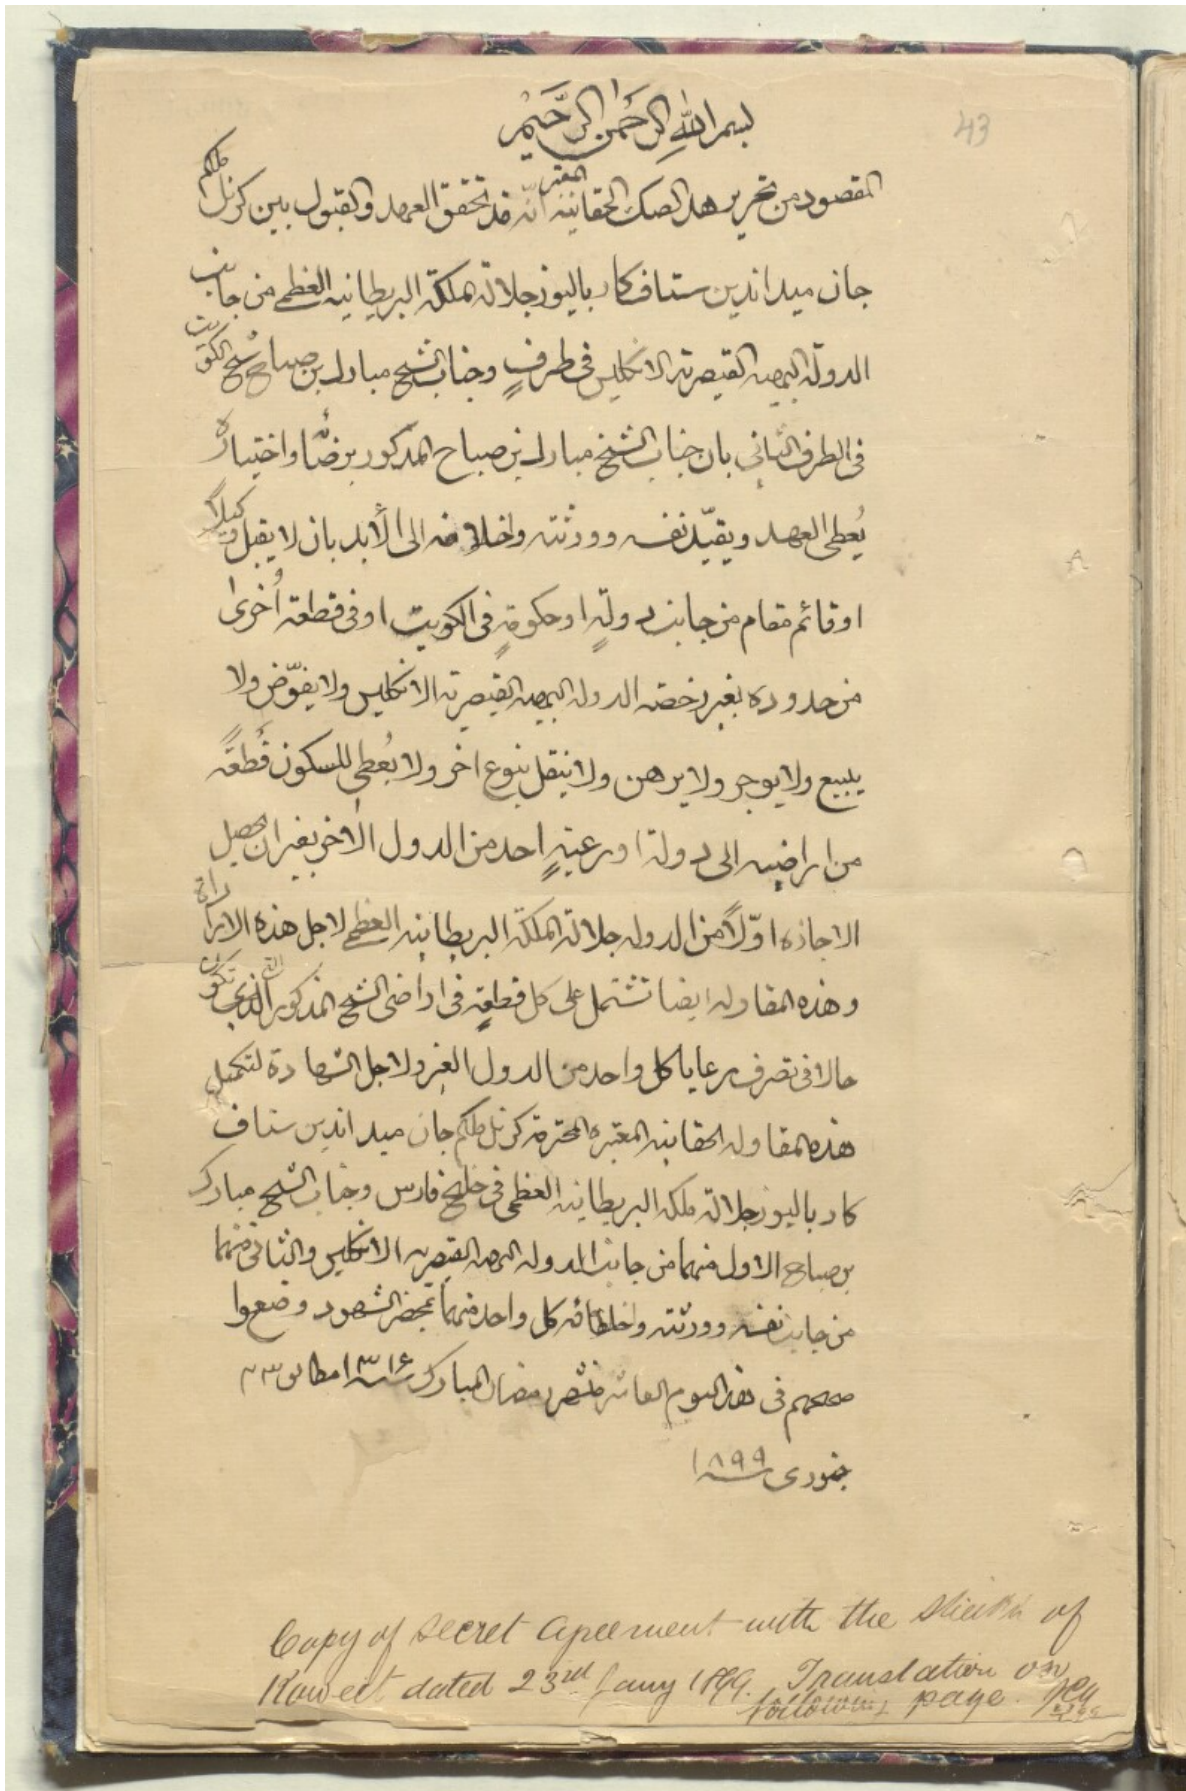 43
بسم اللهِ الرَّحمٰن الرَّحيم
المقصود من تحرير هذ الصك الحقانيه المعتبر انّه قد تحقق العهد والقبول بين كرنل ملكم
جان ميد اندين ستاف كار باليوز جلالة ملكة البريطانيه العظمى من جانب
الدولة البهيه القيصرية الانكليس فى طرفٍ وجناب الشيخ مبارك بن صباح شيخ الكويت
فى الطرف الثانى بان جناب الشيخ مبارك بن صباح المذكور برضاه واختياره
يُعطى العهد ويقيّد نفسه وورثته واخلافه الى الأبد بان لا يقبل وكيلاً
او قائم مقام من جانب دولةٍ او حكومةٍ فى الكويت او فى قطعة اُخرى
من حدوده بغير رخصة الدوله البهيه القيصرية الانكليس ولا يفوّض ولا
يبيع ولا يوجر ولا يرهن ولا ينقل بنوع اخر ولا يُعطى للسكون قُطعةً
من اراضيه الى دولة او رعيةٍ احد من الدول الاخر بغير ان يحصل
الاجازه اوّلاً من الدوله جلالة الملكة البريطانيه العظمى لاجل هذه الايرادات
وهذه المقاوله ايضا تشتمل على كل قطعةٍ فى اراضى الشيخ المذكور التى تكون
حالا فى تصرف رعايا كل واحد من الدول الغير ولاجل الشهادة لتكميل
هذه المقاوله الحقانيه المعتبره المحترمة كرنل ملكم جان ميد اندين ستاف
كار باليوز جلالة ملكه البريطانيه العظمى فى خليج فارس وجناب الشيخ مبارك
بن صباح الاول منهما من جانب الدوله البهيه القيصريه الانكليس والثانى منهما
من جانب نفسه وورثته واخلافه كل واحد منهما بمحضر الشهود وضعوا
صححهم فى هذ اليوم العاشر من شهر رمضان المبارك سنه ١٣١٦ مطابق ٢٣
جنورى سنه ١٨٩٩
Copy of secret agreement with the Sheikh of
Koweit dated 23rd Jany 1899. Translation on
following page.